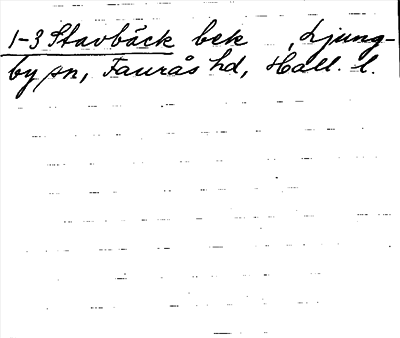 1-3 Stavbäck bek , Ljung-
by sn, Faurås hd, Hall. l.